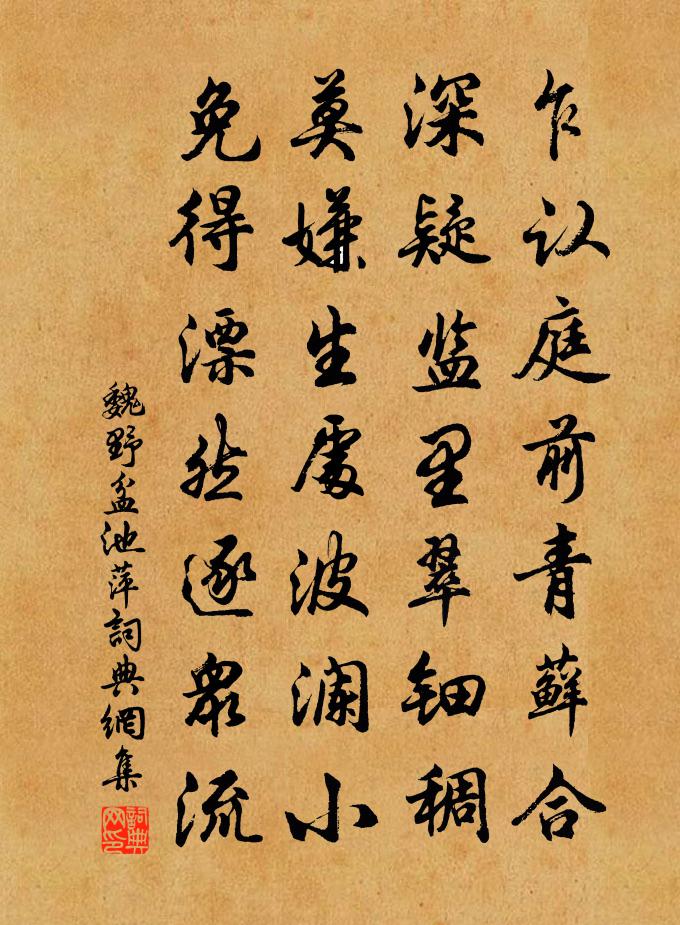 乍认庭前青藓合
深疑监里翠钿稠
莫嫌生處波澜小
免得漂然逐衆流
魏野盆池萍詞典網集
詞典網印